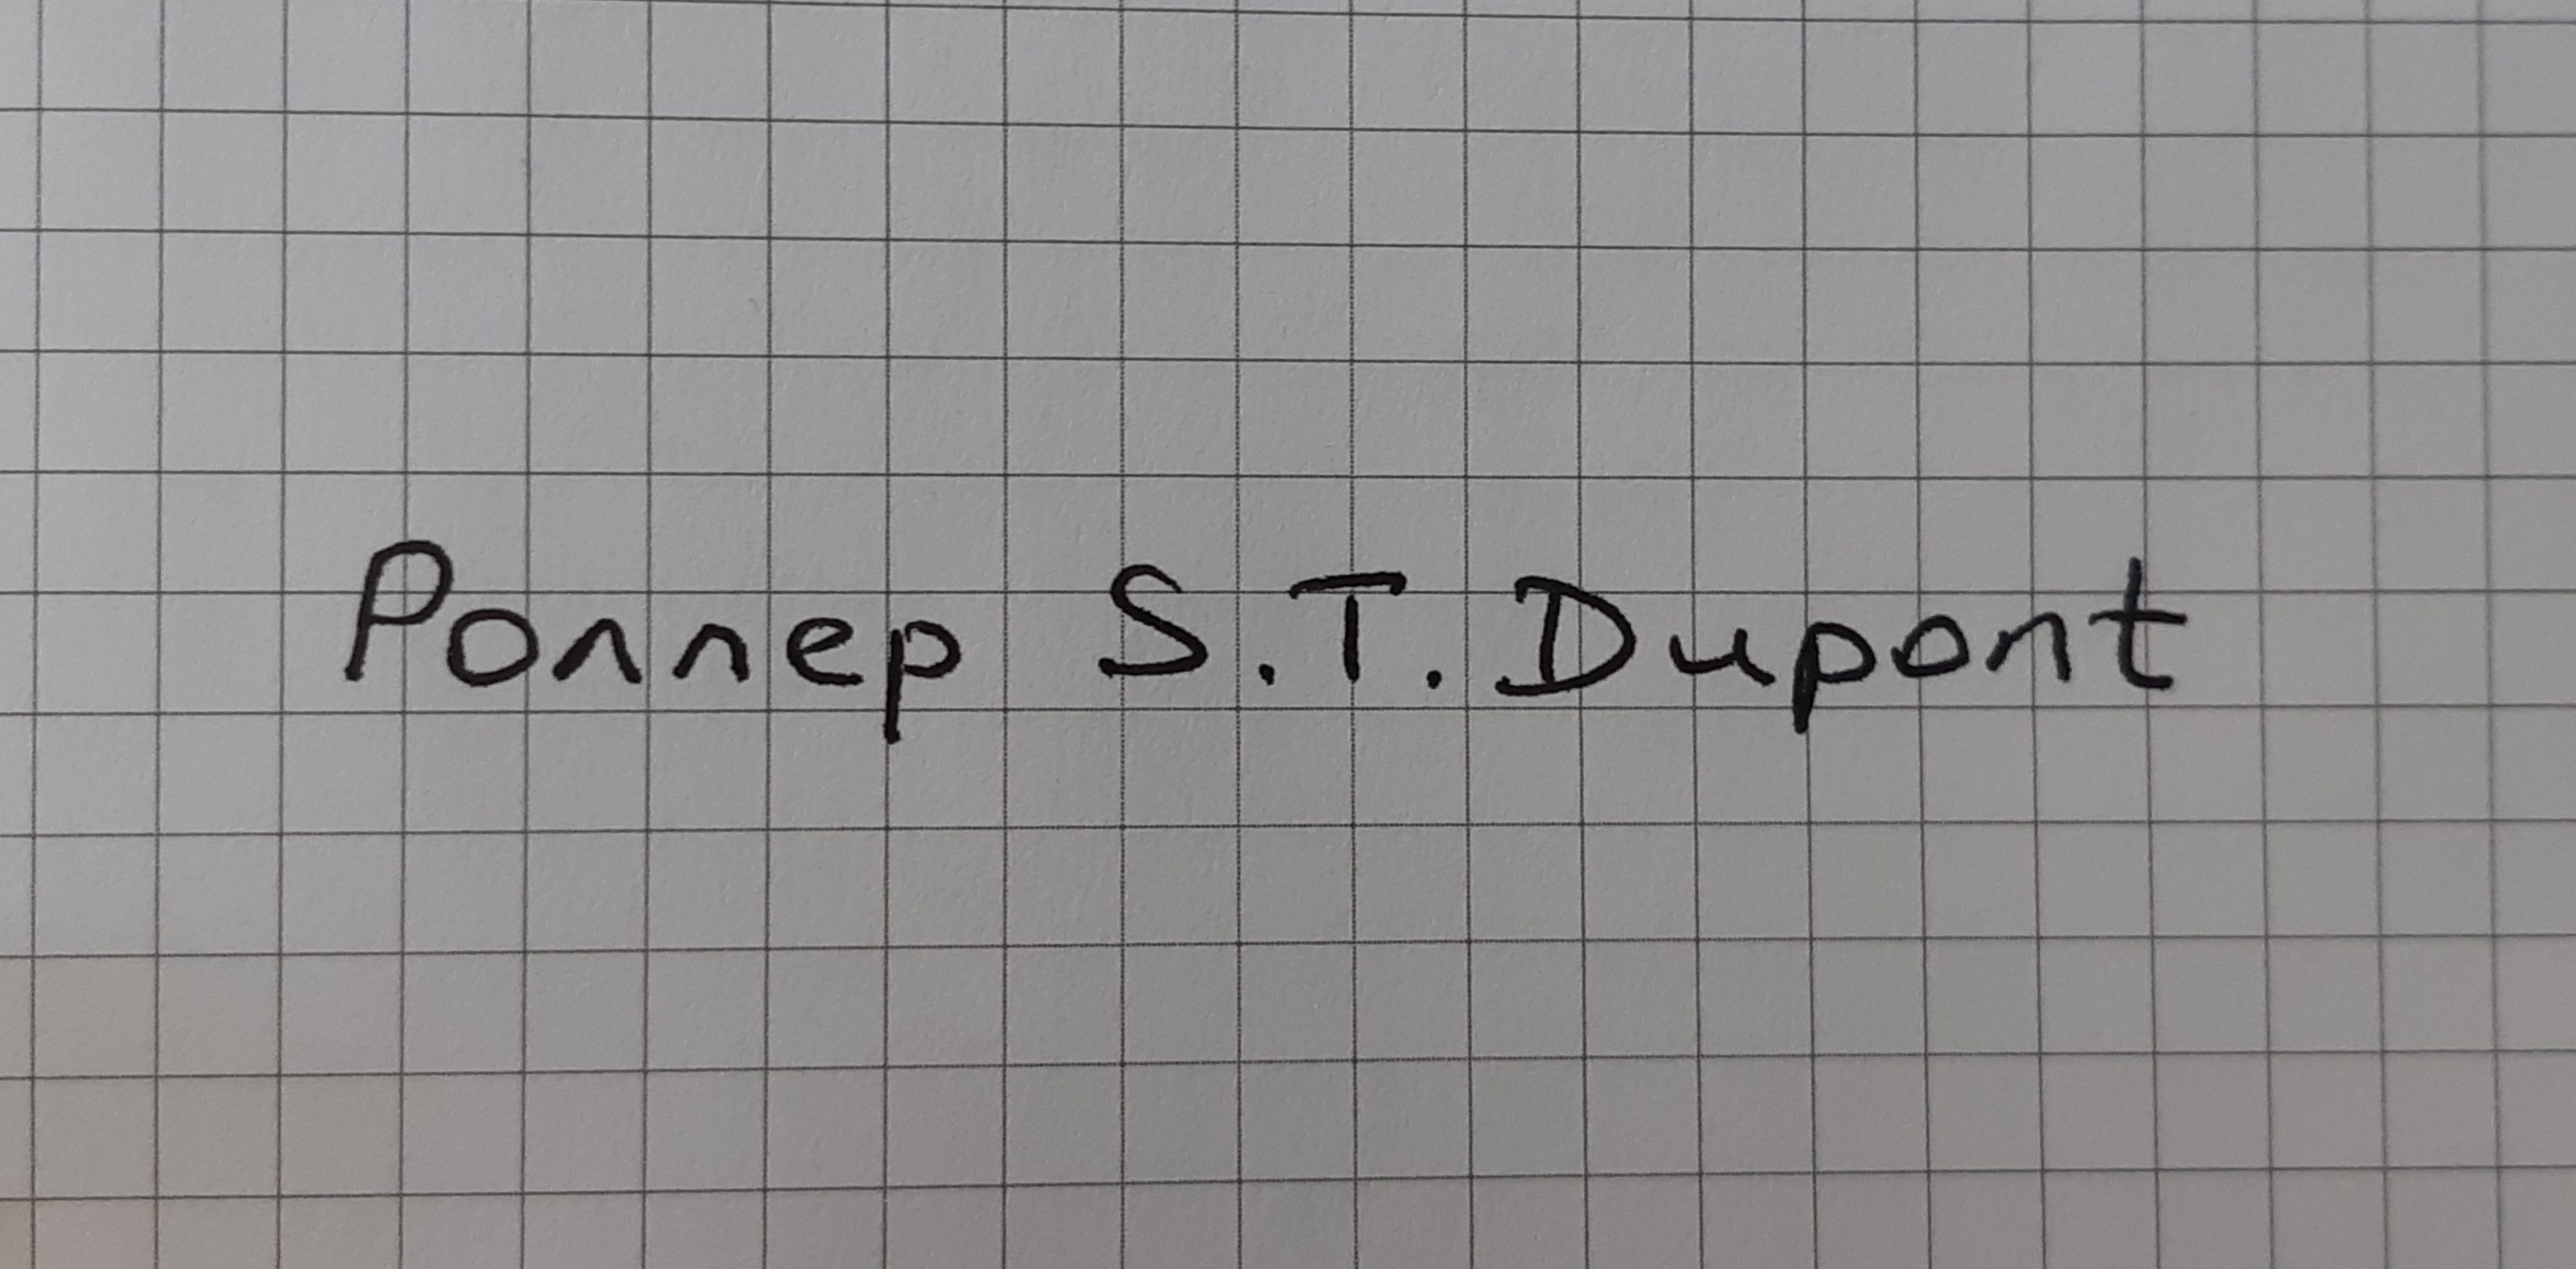 Роллер S.T.Dupont